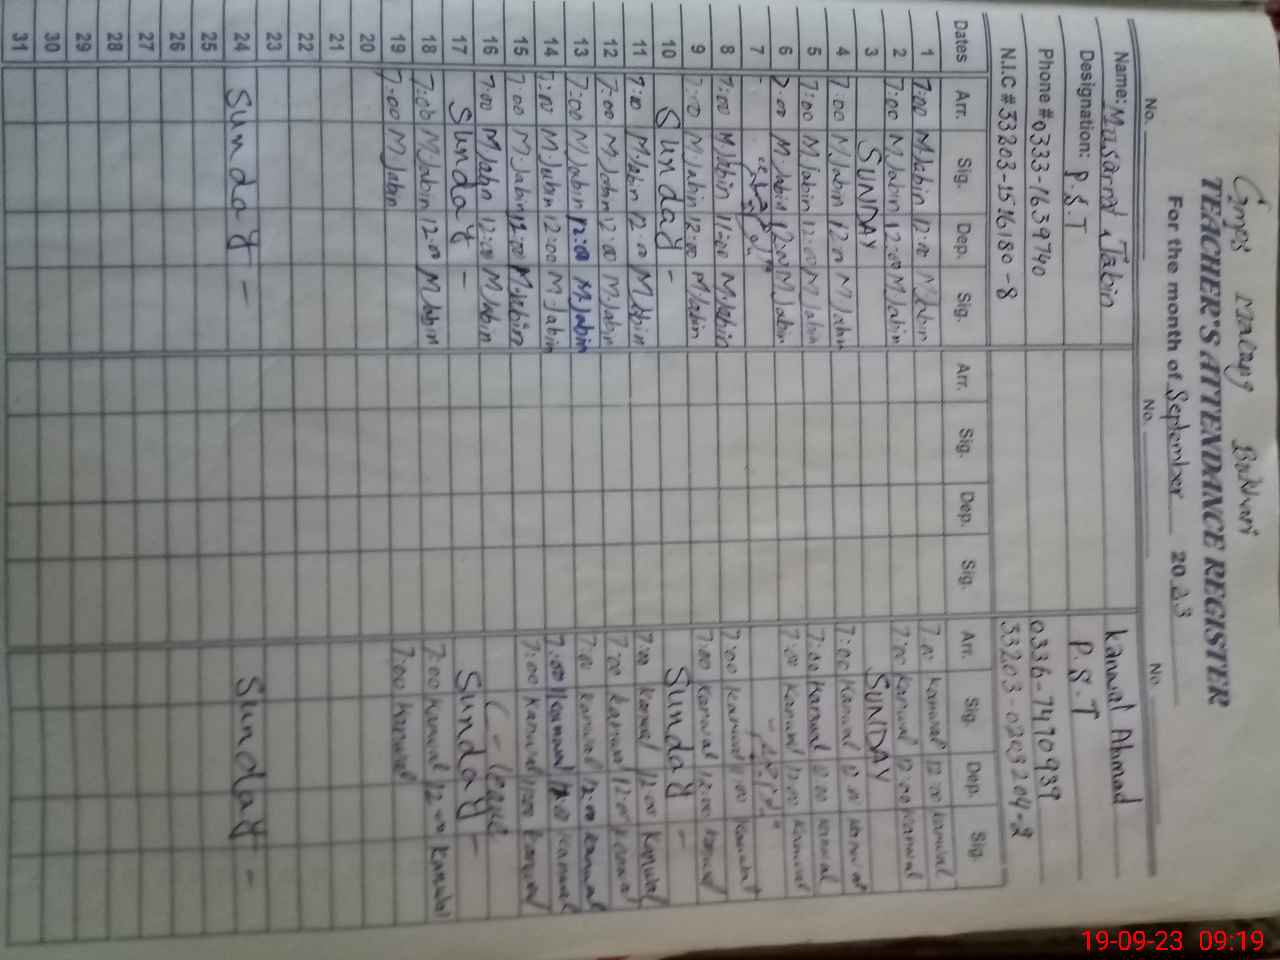 GMPS Malang Bukhari
TEACHER'S ATTENDANCE REGISTER
For the month of September 2023
No. No. No.
Name: Masarrat Jabin Kanwal Ahmad
Designation: P.S.T P.S.T
Phone # 0333-1639740 0336-7470939
N.I.C # 33203-1516180-8 33203-0203204-2
Dates Arr. Sig. Dep. Sig. Arr. Sig. Dep. Sig. Arr. Sig. Dep. Sig.
1 7:00 M.Jabin 12:00 M.Jabin 7:00 Kanwal 12:00 Kanwal
2 7:00 M.Jabin 12:00 M.Jabin 7:00 Kanwal 12:00 Kanwal
3 SUNDAY SUNDAY
4 7:00 M.Jabin 12:00 M.Jabin 7:00 Kanwal 12:00 Kanwal
5 7:00 M.Jabin 12:00 M.Jabin 7:00 Kanwal 12:00 Kanwal
6 7:00 M.Jabin 12:00 M.Jabin 7:00 Kanwal 12:00 Kanwal
7
8 7:00 M.Jabin 11:00 M.Jabin 7:00 Kanwal 11:00 Kanwal
9 7:00 M.Jabin 12:00 M.Jabin 7:00 Kanwal 12:00 Kanwal
10 Sunday - Sunday -
11 7:00 M.Jabin 12:00 M.Jabin 7:00 Kanwal 12:00 Kanwal
12 7:00 M.Jabin 12:00 M.Jabin 7:00 Kanwal 12:00 Kanwal
13 7:00 M.Jabin 12:00 M.Jabin 7:00 Kanwal 12:00 Kanwal
14 7:00 M.Jabin 12:00 M.Jabin 7:00 Kanwal 12:00 Kanwal
15 7:00 M.Jabin 12:00 M.Jabin 7:00 Kanwal Kanwal
16 7:00 M.Jabin 12:00 M.Jabin C-leave
17 Sunday - Sunday -
18 7:00 M.Jabin 12:00 M.Jabin 7:00 Kanwal 12:00 Kanwal
19 7:00 M.Jabin 7:00 Kanwal
20
21
22
23
24 Sunday - Sunday -
25
26
27
28
29
30
31
19-09-23 09:19